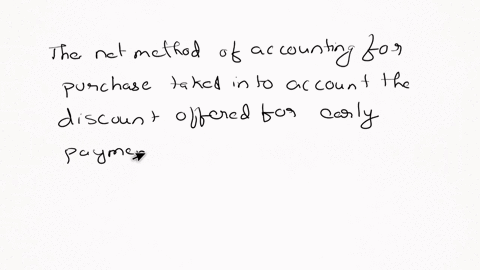 The net method of accounting for
purchase taked in to account the
discount offered for early
payme